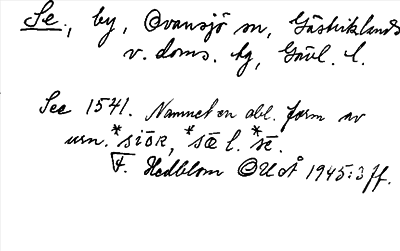 Se., by, Ovansjö sn, Gästriklands
v. doms. hg, Gävl. l.
See 1541. Namnet en abl. form av
urn. *siōR, *sǣ l. *sē.
F. Hedblom OUÅ 1945:3ff.